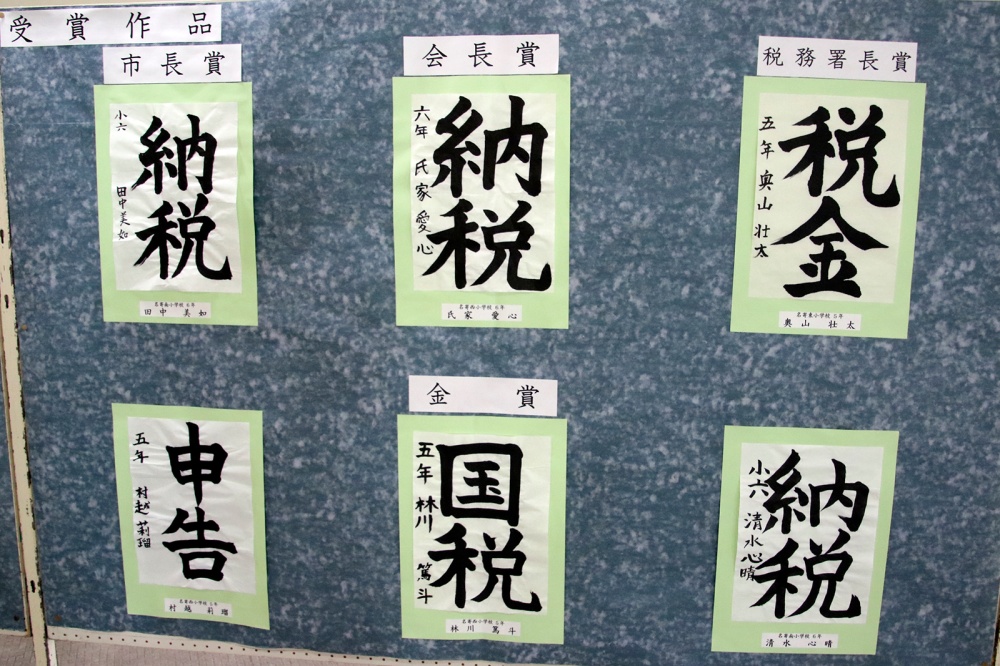 受賞作品
市長賞
納税
小六 田中美如
名寄南小学校 6年
田中 美如
会長賞
納税
六年 氏家 愛心
名寄西小学校 6年
氏家 愛心
税務署長賞
税金
五年 奥山 壮太
名寄東小学校 5年
奥山 壮太
申告
五年 村越 莉瑠
名寄西小学校 5年
村越 莉瑠
金賞
国税
五年 林川 篤斗
名寄西小学校 5年
林川 篤斗
納税
小六 清水心晴
名寄南小学校 6年
清水 心晴